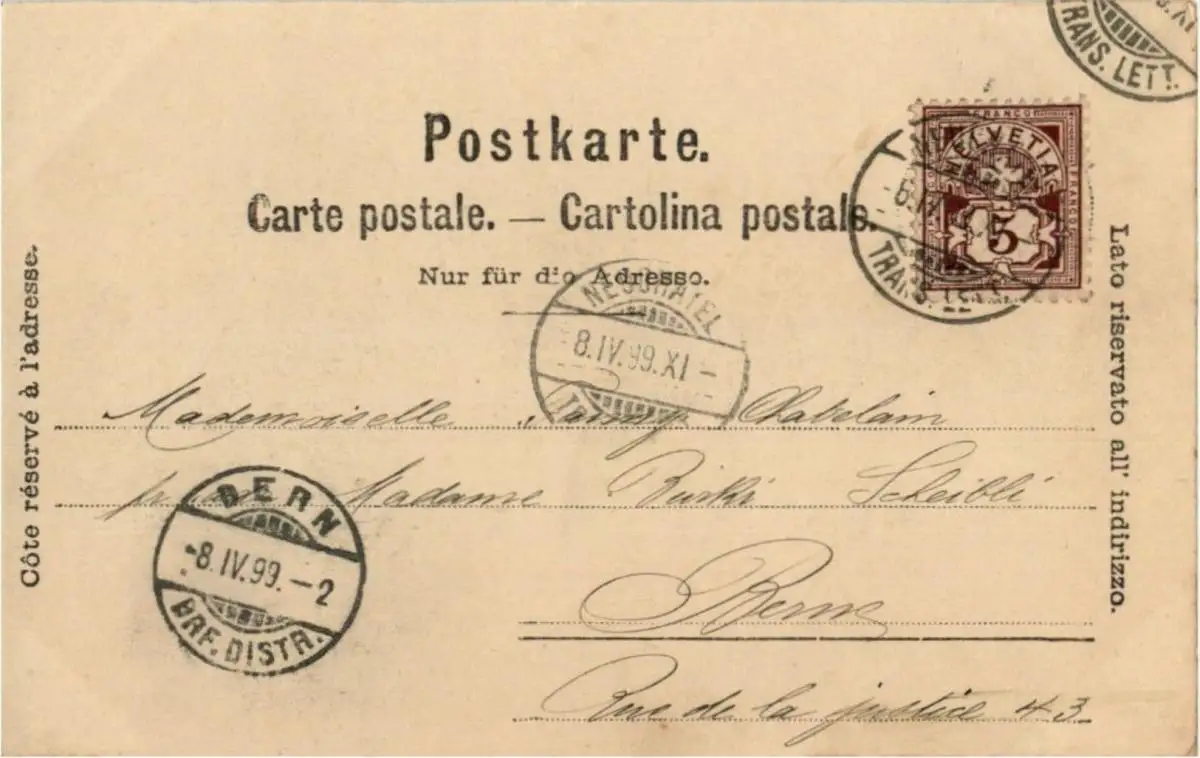 TRANS. LETT.
Postkarte.
FRANCO
HELVETIA
FRANCO
5
TRANS. LETT
Carte postale. — Cartolina postale.
Nur für die Adresse.
NEUCHATEL
8.IV.99.XI –
Côte réservé à l'adresse.
Lato riservato all' indirizzo.
Mademoiselle Fanny Chatelain
Madame Burki Scheibli
BERN
-8.IV.99.–2
BRF. DISTR.
Berne
Rue de la justice 43